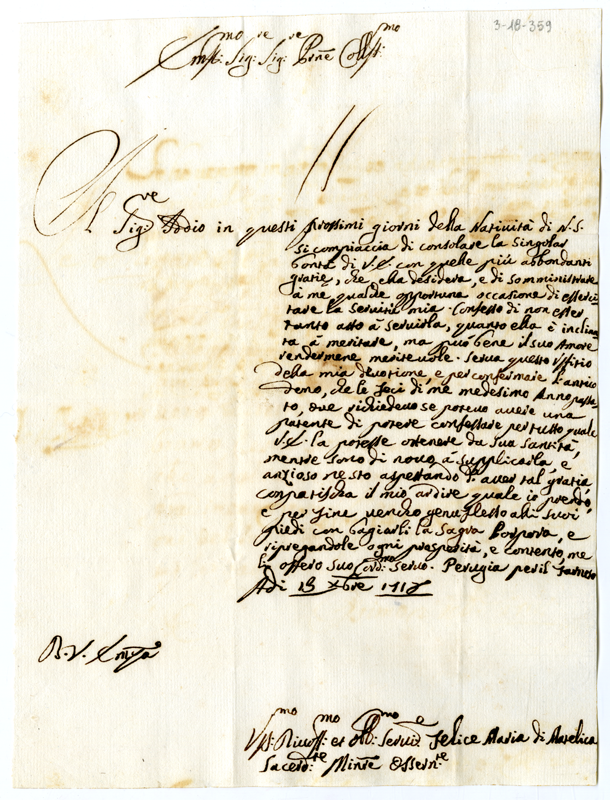 3-18-359
Em:mo Sig:re Sig:re Prñe Coll:mo
Prega il Sig:re Iddio in questi prossimi giorni della Natività di N.S.
si compiaccia di consolare la singolar
bontà di V.E. con quelle più abbondanti
gratie, che ella desidera, e di somministrare
à me qualche opportuna occasione di esserci
tare la servitù mia. Confesso di non esser
tanto atto à servirla, quanto ella è inclina
ta à meritare, ma può bene il suo Amore
rendermene meriteuole. Serua questo uffitio
della mia diuotione e per confermare l'antico
deno, che le feci di me medesimo Anno passa
to, oue richiedeuo se poteuo auere una
patente di potere confessare per tutto quale
V.E. la potesse ottenere da Sua Santità,
mentre sono di nouo à supplicarla, e
anzioso ne sto aspettando d'auer tal gratia
compatischa il mio ardire quale io prendo
e per fine uenero genuflesso alli suoi
piedi con bagiarli la Sagra Porpora, e
ripregandole ogni prosperità, e contento, me
li offero suo Cord:mo Seruo. Perugia per il Farneto
Adi 18 Xbre 1718
B.V. Em:za
Um:mo Diuot:mo et Obl:mo Seruit:e Felice Maria di Matelica
Sacerd:te Min:re Osseru:te